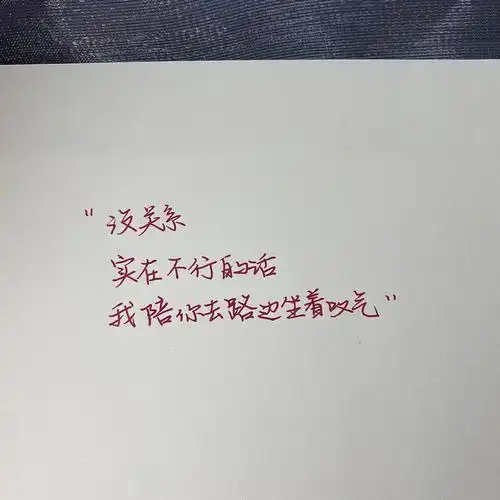 “没关系
实在不行的话
我陪你去路边坐着叹气”